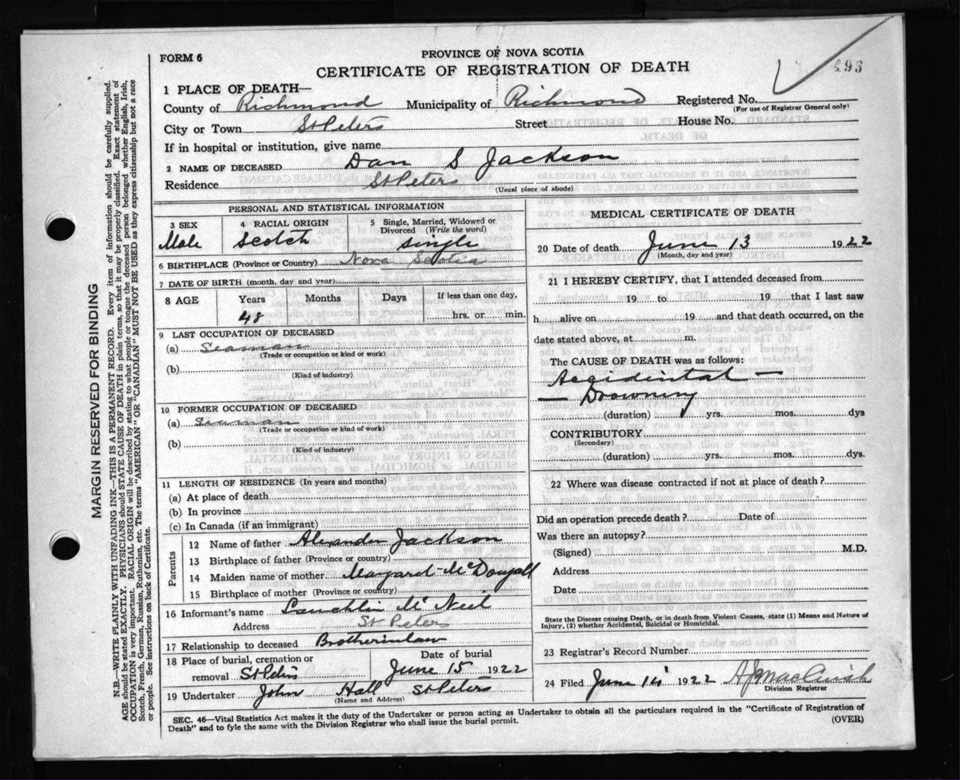 FORM 6
PROVINCE OF NOVA SCOTIA
CERTIFICATE OF REGISTRATION OF DEATH
493
1 PLACE OF DEATH—
County of Richmond Municipality of Richmond Registered No.
(For use of Registrar General only)
City or Town St Peters Street House No.
If in hospital or institution, give name
2 NAME OF DECEASED Dan S Jackson
Residence St Peters
(Usual place of abode)
PERSONAL AND STATISTICAL INFORMATION
3 SEX 4 RACIAL ORIGIN 5 Single, Married, Widowed or
Divorced (Write the word)
Male Scotch single
6 BIRTHPLACE (Province or Country) Nova Scotia
7 DATE OF BIRTH (month, day and year)
8 AGE Years Months Days If less than one day,
48 hrs. or min.
9 LAST OCCUPATION OF DECEASED
(a) Seaman
(Trade or occupation or kind or work)
(b)
(Kind of industry)
10 FORMER OCCUPATION OF DECEASED
(a) Seaman
(Trade or occupation or kind of work)
(b)
(Kind of industry)
11 LENGTH OF RESIDENCE (In years and months)
(a) At place of death
(b) In province
(c) In Canada (if an immigrant)
Parents
12 Name of father Alexander Jackson
13 Birthplace of father (Province or country)
14 Maiden name of mother Margaret McDougall
15 Birthplace of mother (Province or country)
16 Informant's name Lauchlin McNeil
Address St Peters
17 Relationship to deceased Brotherinlaw
18 Place of burial, cremation or Date of burial
removal St Peters June 15 1922
19 Undertaker John Hall St Peters
(Name and Address)
MEDICAL CERTIFICATE OF DEATH
20 Date of death June 13 1922
(Month, day and year)
21 I HEREBY CERTIFY, that I attended deceased from
19 to 19 that I last saw
h alive on 19 and that death occurred, on the
date stated above, at m.
The CAUSE OF DEATH was as follows:
Accidental —
— Drowning
(duration) yrs. mos. dys
CONTRIBUTORY
(Secondary)
(duration) yrs. mos. dys.
22 Where was disease contracted if not at place of death?
Did an operation precede death? Date of
Was there an autopsy?
(Signed) M.D.
Address
Date
State the Disease causing Death, or in death from Violent Causes, state (1) Means and Nature of
Injury, (2) whether Accidental, Suicidal or Homicidal.
23 Registrar's Record Number
24 Filed June 14 1922 A J MacCuish
Division Registrar
SEC. 46—Vital Statistics Act makes it the duty of the Undertaker or person acting as Undertaker to obtain all the particulars required in the "Certificate of Registration of
Death" and to fyle the same with the Division Registrar who shall issue the burial permit. (OVER)
MARGIN RESERVED FOR BINDING
N.B.—WRITE PLAINLY WITH UNFADING INK—THIS IS A PERMANENT RECORD. Every item of information should be carefully supplied.
AGE should be stated EXACTLY. PHYSICIANS should STATE CAUSE OF DEATH in plain terms, so that it may be properly classified. Exact statement of
OCCUPATION is very important. RACIAL ORIGIN will be described by stating to what people or tongue the deceased person belonged whether English, Irish,
Scotch, French, German, Russian, Ruthenian, etc. The terms "AMERICAN" OR "CANADIAN" MUST NOT BE USED as they express citizenship but not a race
or people. See instructions on back of Certificate.